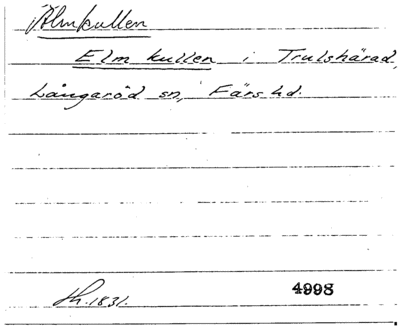 Älmkullen
Elm kullen i Trulshärad,
Långaröd sn, Färs hd.
Th. 1831.
4998